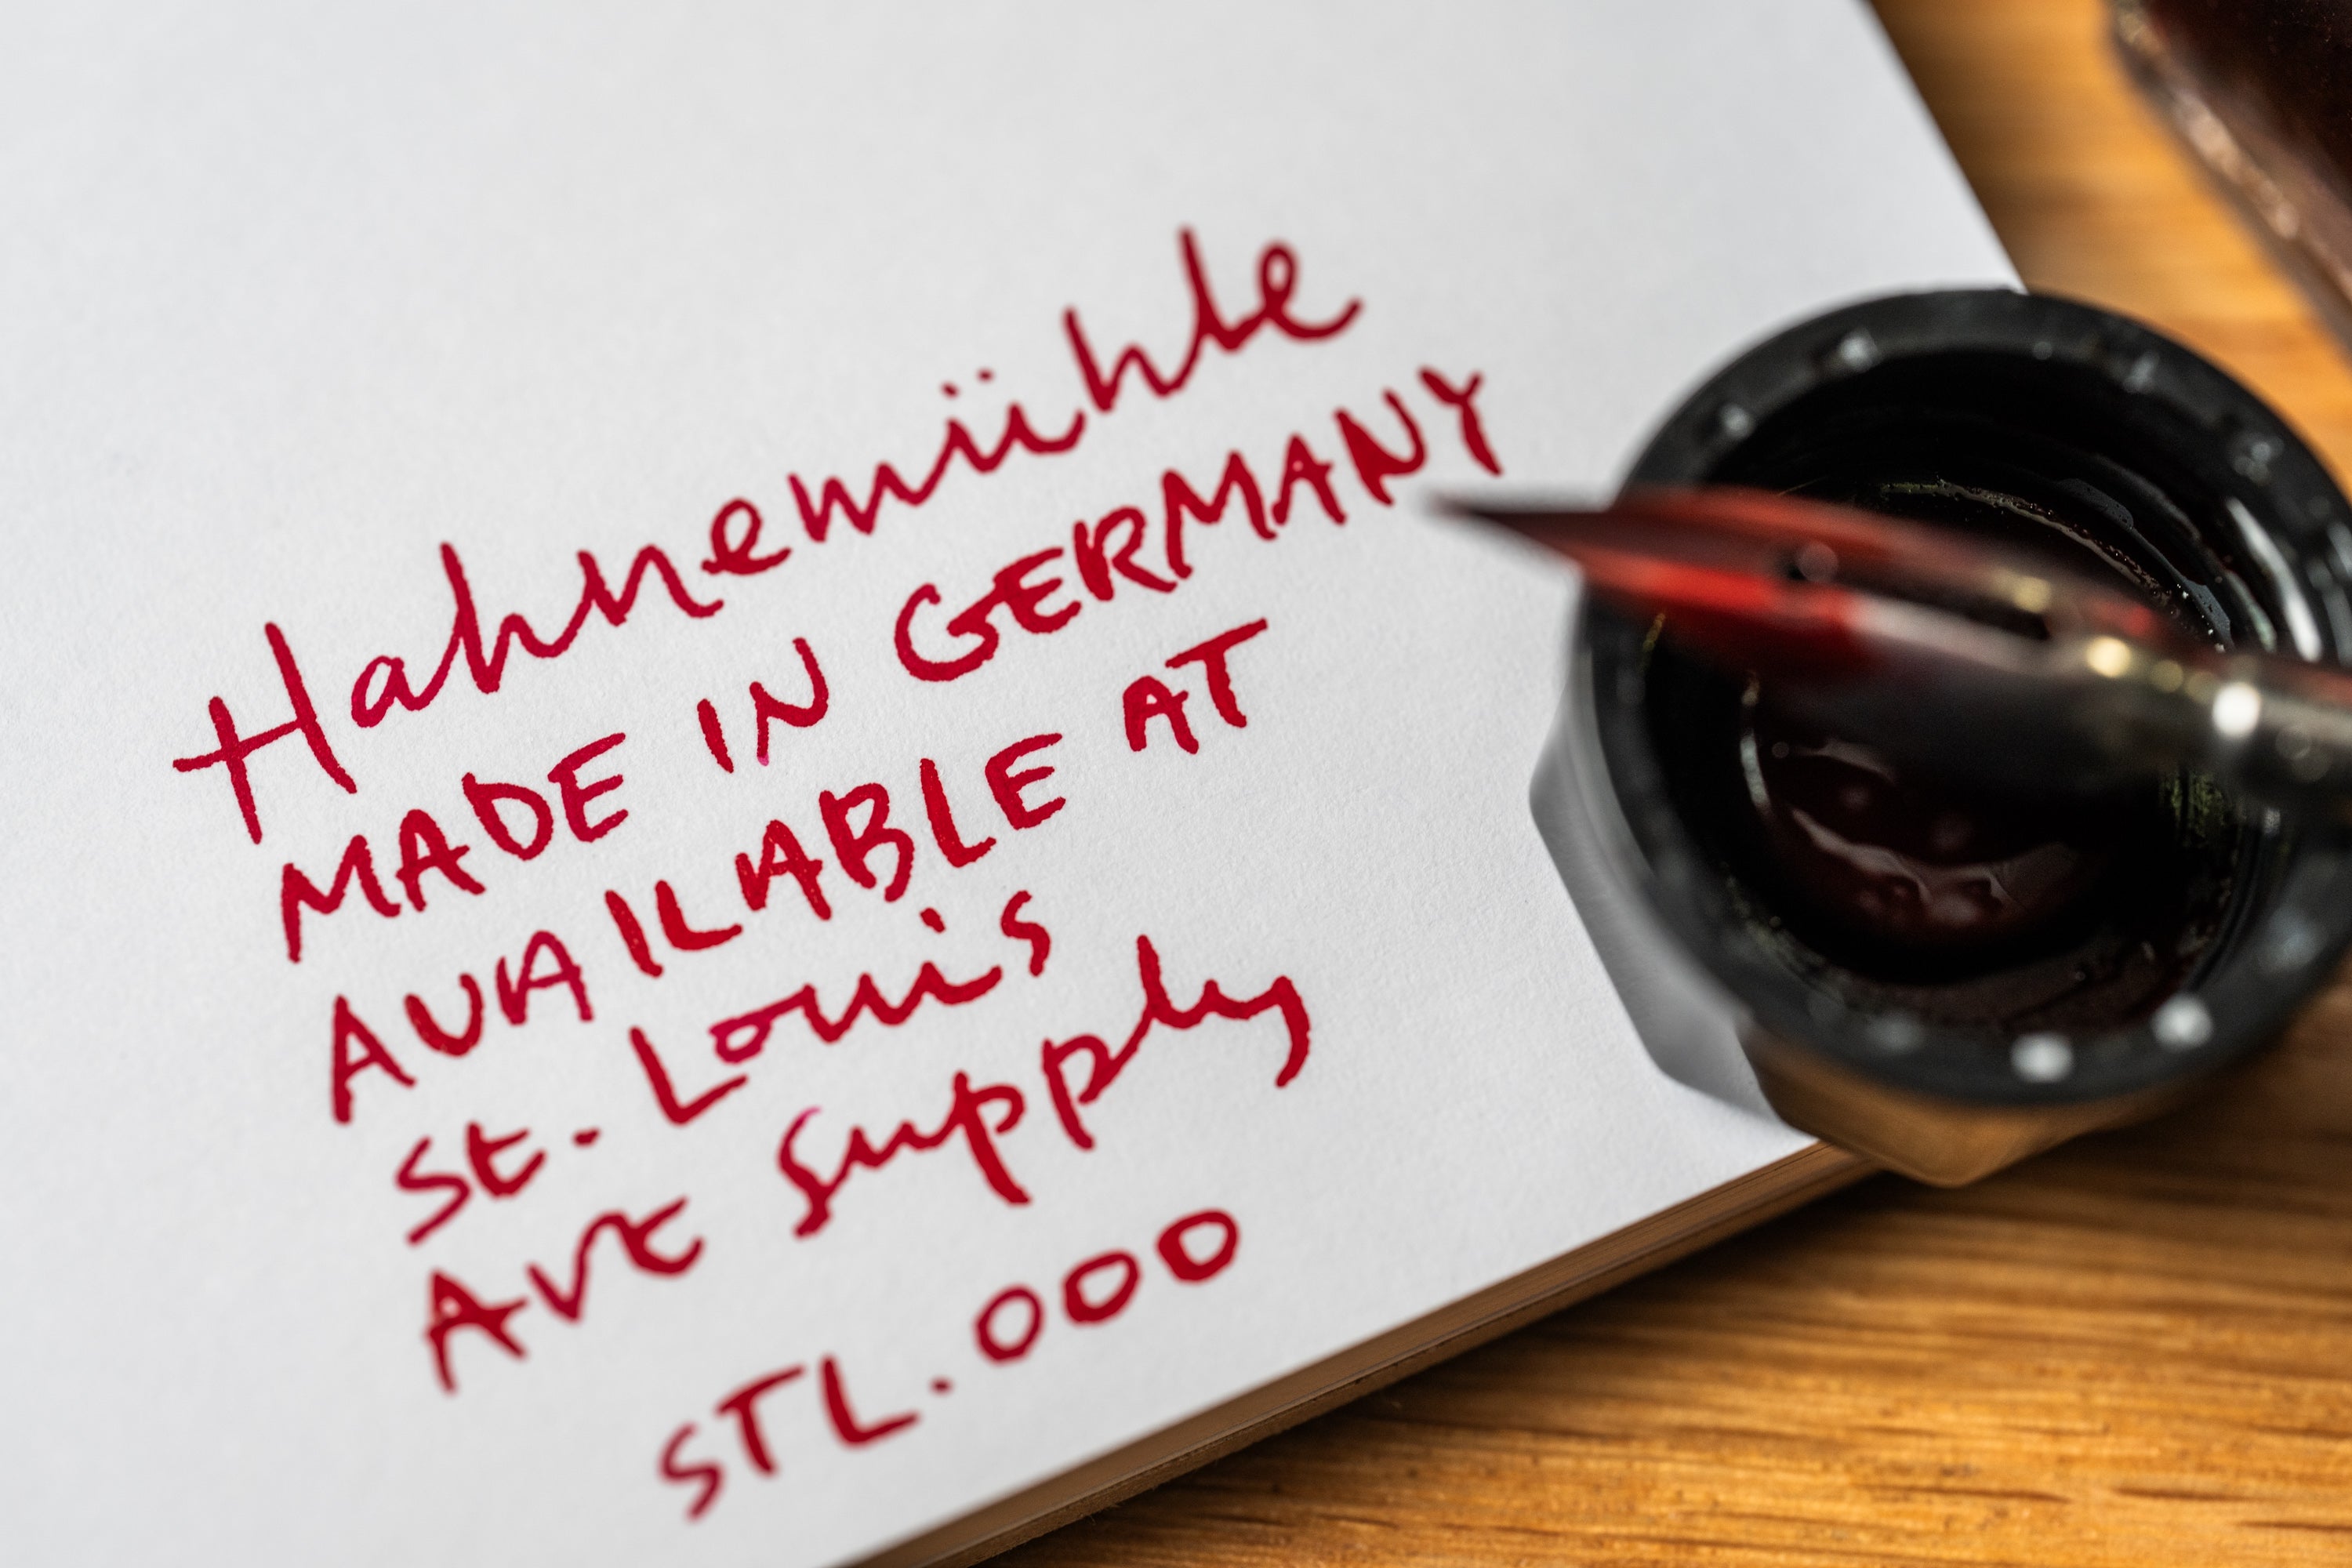 Hahnemühle
MADE IN GERMANY
AVAILABLE AT
St. Louis
Art Supply
STL.000